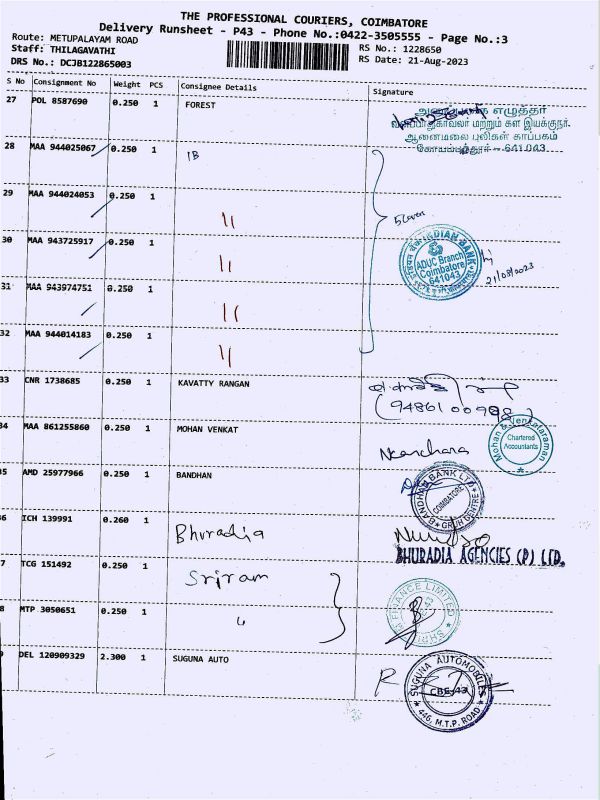 THE PROFESSIONAL COURIERS, COIMBATORE
Delivery Runsheet - P43 - Phone No.:0422-3505555 - Page No.:3
Route: METUPALAYAM ROAD
Staff: THILAGAVATHI
DRS No.: DCJB122865003
RS No.: 1228650
RS Date: 21-Aug-2023
S No Consignment No Weight PCS Consignee Details Signature
27 POL 8587690 0.250 1 FOREST
எழுத்தர்
மற்றும் கள இயக்குநர்,
ஆனைமலை புலிகள் காப்பகம்
கோயம்புத்தூர் - 641 043
28 MAA 944025067 0.250 1 IB
29 MAA 944024053 0.250 1 "
30 MAA 943725917 0.250 1 "
INDIAN BANK
ADUC Branch
Coimbatore
641043
21/08/2023
31 MAA 943974751 0.250 1 "
32 MAA 944014183 0.250 1 "
33 CNR 1738685 0.250 1 KAVATTY RANGAN
34 MAA 861255860 0.250 1 MOHAN VENKAT
Mohan & Venkataraman
Chartered
Accountants
35 AMD 25977966 0.250 1 BANDHAN
BANDHAN BANK LTD
COIMBATORE
GRUH CENTRE
36 ICH 139991 0.260 1 Bhuradia
BHURADIA AGENCIES (P) LTD.
37 TCG 151492 0.250 1 Sriram
38 MTP 3050651 0.250 1 "
FINANCE LIMITED
39 DEL 120909329 2.300 1 SUGUNA AUTO
SUGUNA AUTOMOBILES
CBE-43
446, M.T.P. ROAD